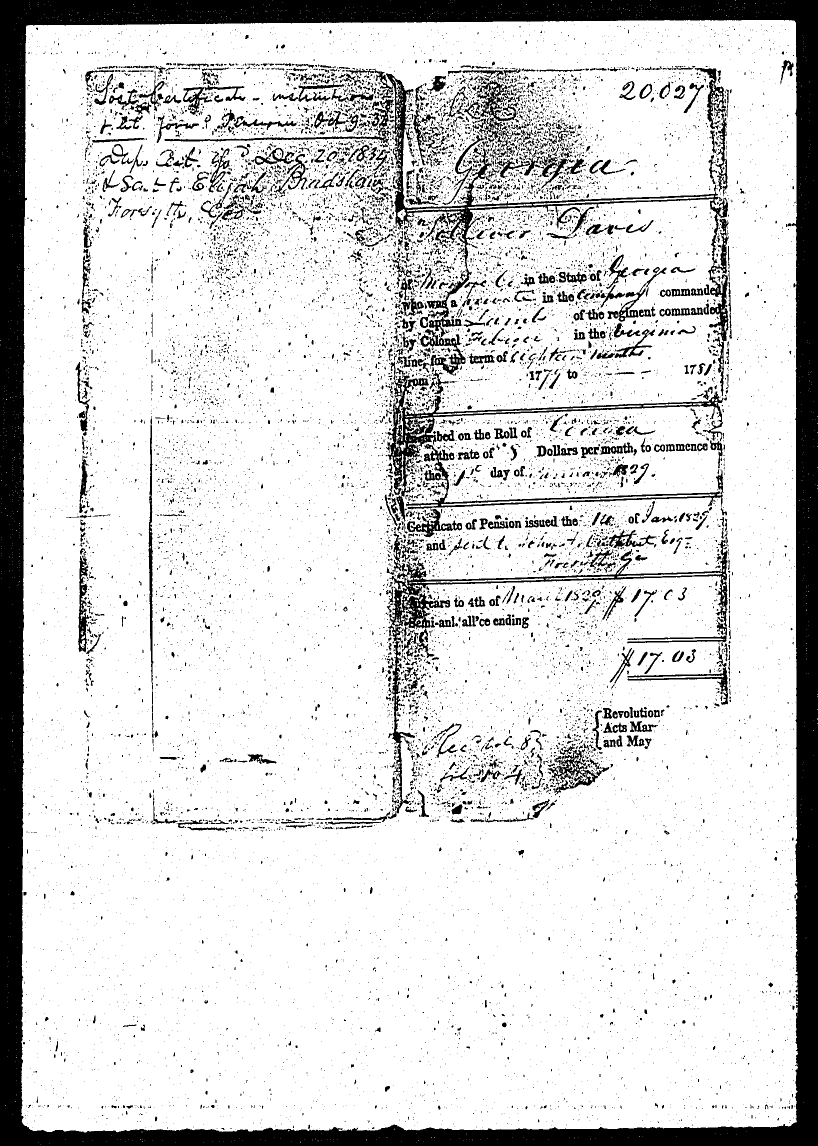 Lost Certificate - instruction
& let. forwd. Pensioner Oct 9.
Dup. Cert. iss'd Dec 20. 1834
& Sent to Elijah Bradshaw
Forsyth, Geo
20,027
Georgia.
Tolliver Davis.
of Monroe Co. in the State of Georgia
who was a private in the company commanded
by Captain Lamb of the regiment commanded
by Colonel Febiger in the Virginia
line, for the term of eighteen months.
from 1779 to 1781
Inscribed on the Roll of Georgia
at the rate of 8 Dollars per month, to commence on
the 1st day of January 1829.
Certificate of Pension issued the 14 of Jan. 1829
and sent to Cuthbert, Esq.
Forsyth Ga
Arrears to 4th of March 1829 $17.03
Semi-anl. all'ce ending
$17.03
Revolution
Acts Mar
and May
Rec